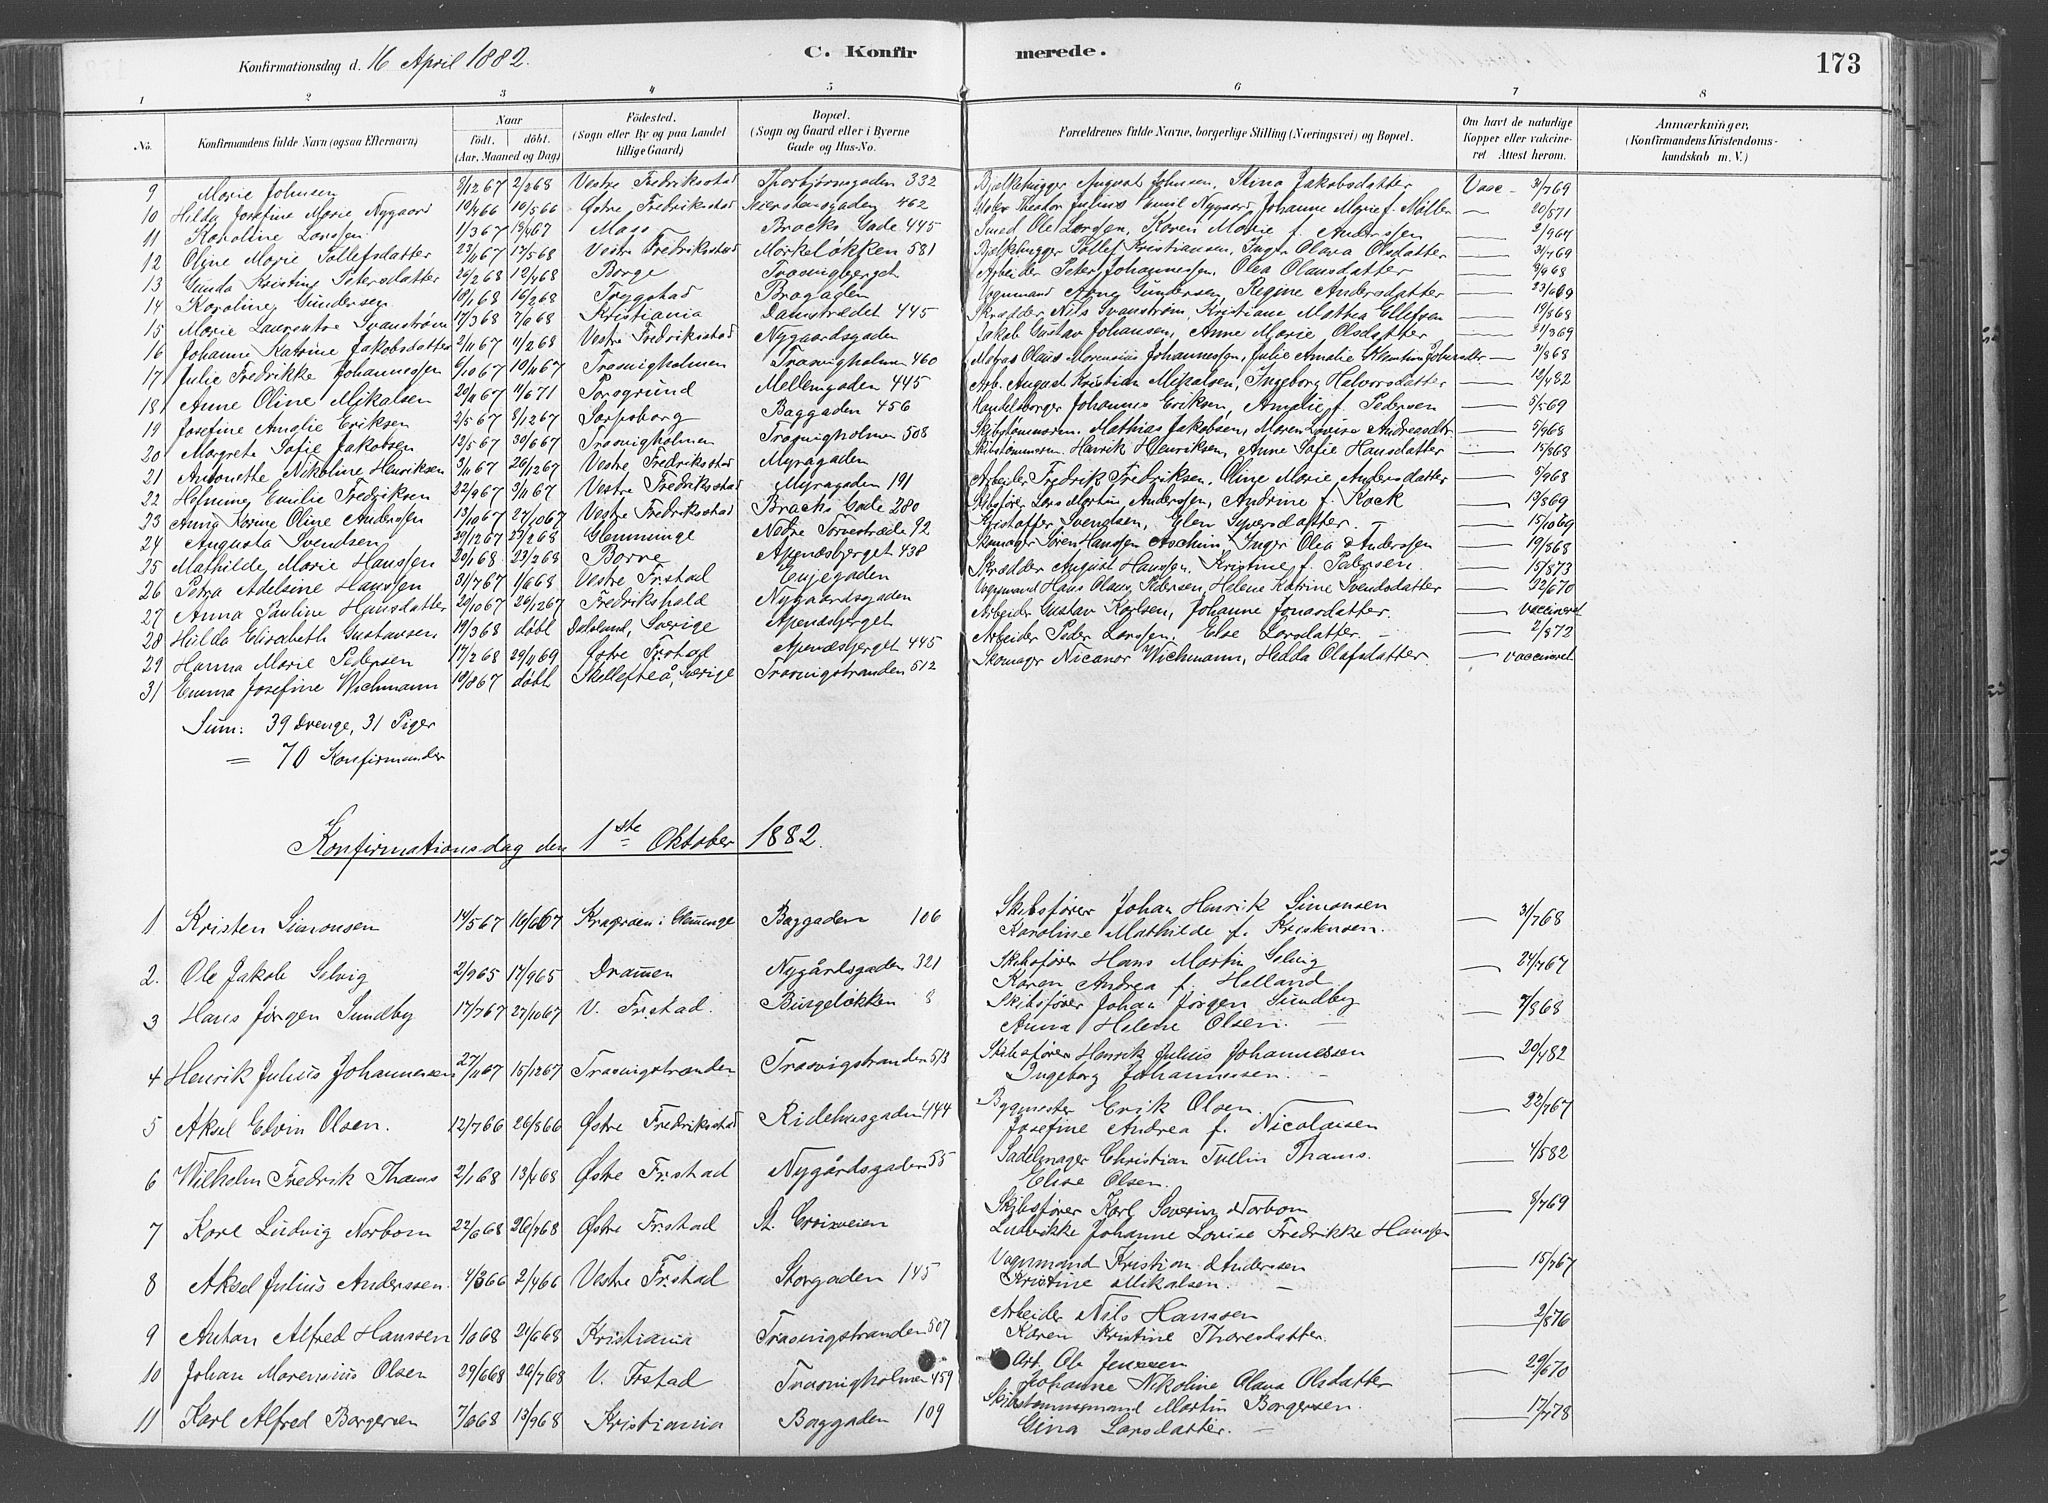 Konfirmationsdag d. 16 April 1882. C. Konfirmerede. 173
1 2 3 4 5 6 7 8
No. Konfirmandens fulde Navn (ogsaa Efternavn) Naar født. døbt. (Aar, Maaned og Dag) Fødested. (Sogn eller By og paa Landet tillige Gaard) Bopæl. (Sogn og Gaard eller i Byerne Gade og Hus-No. Forældrenes fulde Navne, borgerlige Stilling (Næringsvei) og Bopæl. Om havt de naturlige Kopper eller vakcineret Attest herom. Anmærkninger, (Konfirmandens Kristendomskundskab m. V.)
9 Marie Johnsen 9/12 67 2/2 68 Vestre Fredriksstad Thorbjørnsgaden 332 Bjelkehugger August Johnsen, Stina Jakobsdatter Vacc - 31/7 69
10 Hilda Josefine Marie Nygaard 10/4 66 10/5 66 Østre Fredriksstad 462 Theodor Julius Emil Nygaard, Johanne Marie f. Møller — 20/5 71
11 Karoline Larssen 1/3 67 19/4 67 Moss Brochs Gade 445 Smed Ole Larssen, Karen Marie f. Anderssen —
12 Oline Marie Tollefsdatter 23/11 67 17/5 68 Vestre Fredriksstad Mørkeløkken 581 Bjelkehugger Tollef Kristiansen, Inger Olava Olsdatter — 31/7 69
13 Gunda Kristine Petersdatter 26/2 68 12/4 68 Borge Trosvigberget Arbeider Peter Johannessen, Olea Olausdatter — 9/4 68
14 Karoline Gundersen 10/1 68 16/2 68 Trygstad Brogaden Vognmand Arne Gundersen, Regine Andersdatter — 23/6 69
15 Marie Laurentze Svanstrøm 17/3 68 7/6 68 Kristiania Damstrædet 445 Skrædder Nils Svanstrøm, Kristiane Mathea Ellefsen — 19/8 68
16 Johanne Katrine Jakobsdatter 2/11 67 11/2 68 Vestre Fredriksstad Nygaardsgaden Jakob Gustav Johansen, Anne Marie Olsdatter — 21/3 69
17 Julie Fredrikke Johannessen 6/10 67 10/11 67 Trosvigholmen Trosvigholmen 460 Matros Olaus Morensius Johannessen, Julie Amalie — 31/8 68
18 Anne Oline Mikalsen 20/11 67 4/6 71 Porsgrund Mellemgaden 445 Arb. August Kristian Mikalsen, Ingeborg Halvorsdatter — 12/4 82
19 Josefine Amalie Eriksen 2/5 67 8/12 67 Sarpsborg Baggaden 456 Handelsborger Johannes Eriksen, Amalie f. Pedersen — 5/5 69
20 Margrete Sofie Jakobsen 12/5 67 30/6 67 Trosvigholmen Trosvigholmen 508 Skibstømmerm. Mathias Jakobsen, Maren Lovise Andreasdtr — 5/4 68
21 Antonette Nikoline Henriksen 3/11 67 26/12 67 Vestre Fredriksstad Myragaden Skibstømmerm. Henrik Henriksen, Anne Sofie Hansdatter — 15/8 68
22 Hemming Emilie Fredriksen 22/9 67 3/11 67 Vestre Fredriksstad Myragaden 191 Arbeider Fredrik Fredriksen, Oline Marie Andersdatter — 5/9 68
23 Anna Karine Oline Anderssen 13/10 67 27/10 67 Vestre Fredriksstad Brochs Gade 280 Skibsfører Lars Martin Anderssen, Andrine f. Kock — 19/8 69
24 Augusta Svendsen 29/12 67 23/2 68 Glemminge Nedre Torvestræde 92 Kristoffer Svendsen, Elen Syversdatter. — 15/10 69
25 Mathilde Marie Hanssen 20/1 68 23/2 68 Borre Apenæsberget 438 Skomager Søren Hanssen Aschim, Inger Olea Anderssen — 19/5 68
26 Petra Adelaine Hanssen 31/7 67 1/6 68 Vestre Fr.stad Enjegaden Skrædder August Hanssen, Kristine f. Pedersen. — 15/8 73
27 Anna Pauline Hansdatter 20/10 67 29/12 67 Fredrikshald Nygaardsgaden Vognmand Hans Olaus Pedersen, Helene Katrine Svendsdatter — 22/6 70
28 Hilda Elisabeth Gustavsen 19/3 68 døbt Dalsland, Sverige Apenæsberget Arbeider Gustav Karlsen, Johanne Jonasdatter. — vaccineret
29 Hanna Marie Pedersen 17/2 68 29/11 69 Østre Fr.stad Apenæsberget 445 Arbeider Peder Larssen, Else Larsdatter. — 2/8 72
31 Emma Josefine Wichmann 19/8 67 døbt Skellefteå, Sverige Trosvigstranden 512 Skomager Nicanor Wichmann, Hedda Olafsdatter. — vaccineret
Sum: 39 Drenge, 31 Piger
= 70 Konfirmander
Konfirmationsdag den 1ste Oktober 1882.
1 Kristen Simonsen 14/5 67 16/6 67 Kragerøen i Glemminge Baggaden 106 Skibsfører Johan Henrik Simonsen — 31/7 68
Karoline Mathilde f. Kristensen.
2. Ole Jakob Selvig 2/9 65 17/9 65 Drammen Nygårdsgaden 321 Skibsfører Hans Martin Selvig — 24/7 67
Karen Andrea f. Holland
3 Hans Jørgen Sundby 17/7 67 27/10 67 V. Fr.stad. Burgeløkken 8 Skibsfører Johan Jørgen Sundby — 7/8 68
Anna Helene Olsen. —
4 Henrik Julius Johannessen 27/11 67 15/12 67 Trosvigstranden Trosvigstranden 513 Skibsfører Henrik Julius Johannessen — 20/4 82
Ingeborg Johannessen. —
5 Aksel Edvin Olsen. 12/7 66 26/8 66 Østre Fredriksstad Ridehusgaden 444 Bygmester Erik Olsen — 22/7 67
Josefine Andrea f. Nicolaisen
6 Wilhelm Fredrik Thams 2/1 68 13/4 68 Østre Fr.stad Nygårdsgaden 55 Sadelmager Christian Tullin Thams. — 4/5 82
Elise Olsen.
7 Karl Ludvig Norbom 22/6 68 26/7 68 Østre Fr.stad St. Croixveien Skibsfører Karl Severin Norbom — 8/7 69
Ludvikke Johanne Lovise Fredrikke Hanssen
8 Aksel Julius Anderssen. 4/3 66 2/4 66 Vestre Fr.stad Storgaden 145 Vognmand Kristian Anderssen — 15/7 67
Kristine Mikalsen. —
9 Anton Alfred Hanssen 1/6 68 21/6 68 Kristiania Trosvigstranden 507 Arbeider Nils Hanssen — 2/8 76
Karen Kristine Thoresdatter.
10 Johan Morensius Olsen 29/6 68 26/7 68 V. Fr.stad Trosvigholmen 459 Arb. Ole Jenssen — 29/6 70
Johanne Nikoline Olava Olsdatter
11 Karl Alfred Borgersen 7/6 68 13/9 68 Kristiania Baggaden 109 Skibstømmermand Martin Borgersen. — 17/7 78
Gina Larsdatter. —